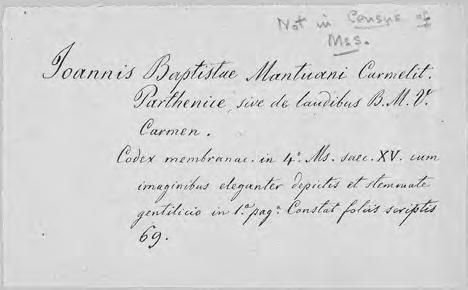 Not in Census of
Mss.
Joannis Baptistae Mantuani Carmelit.
Parthenice, sive de laudibus B. M. V.
Carmen.
Codex membranac. in 4º. Ms. saec. XV. cum
imaginibus eleganter depictis et stemmate
gentilicio in 1.ª pagª. Constat foliis scriptis
69.